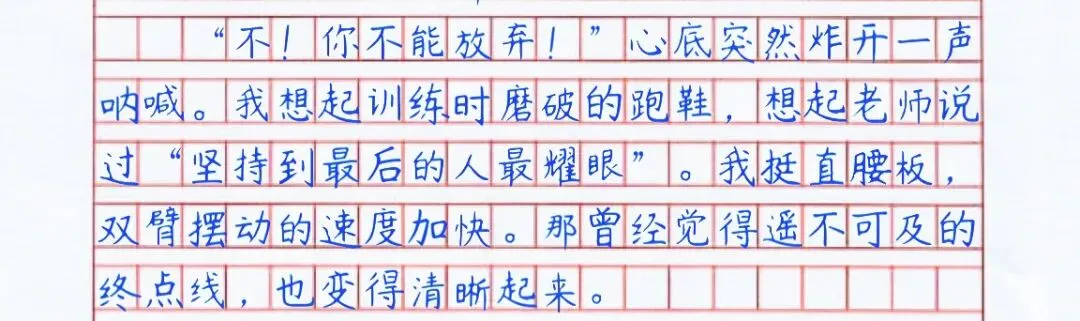 “不！你不能放弃！”心底突然炸开一声
呐喊。我想起训练时磨破的跑鞋，想起老师说
过“坚持到最后的人最耀眼”。我挺直腰板，
双臂摆动的速度加快。那曾经觉得遥不可及的
终点线，也变得清晰起来。